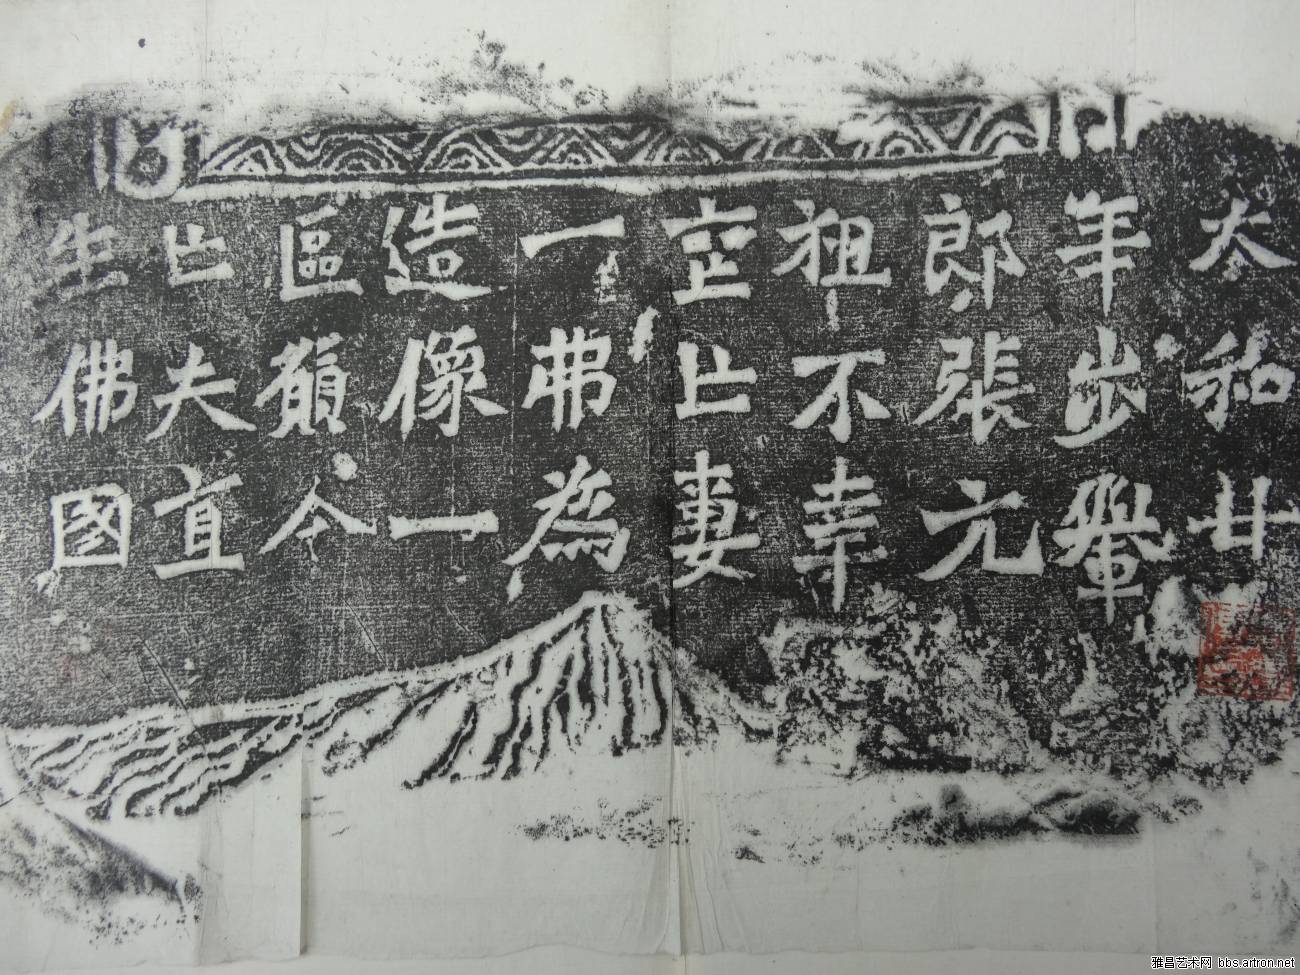 太和廿
年步轝
郎張元
祖不幸
亡妻
一弗為
造像一
區願令
亡夫直
生佛國
雅昌艺术网 bbs.artron.net